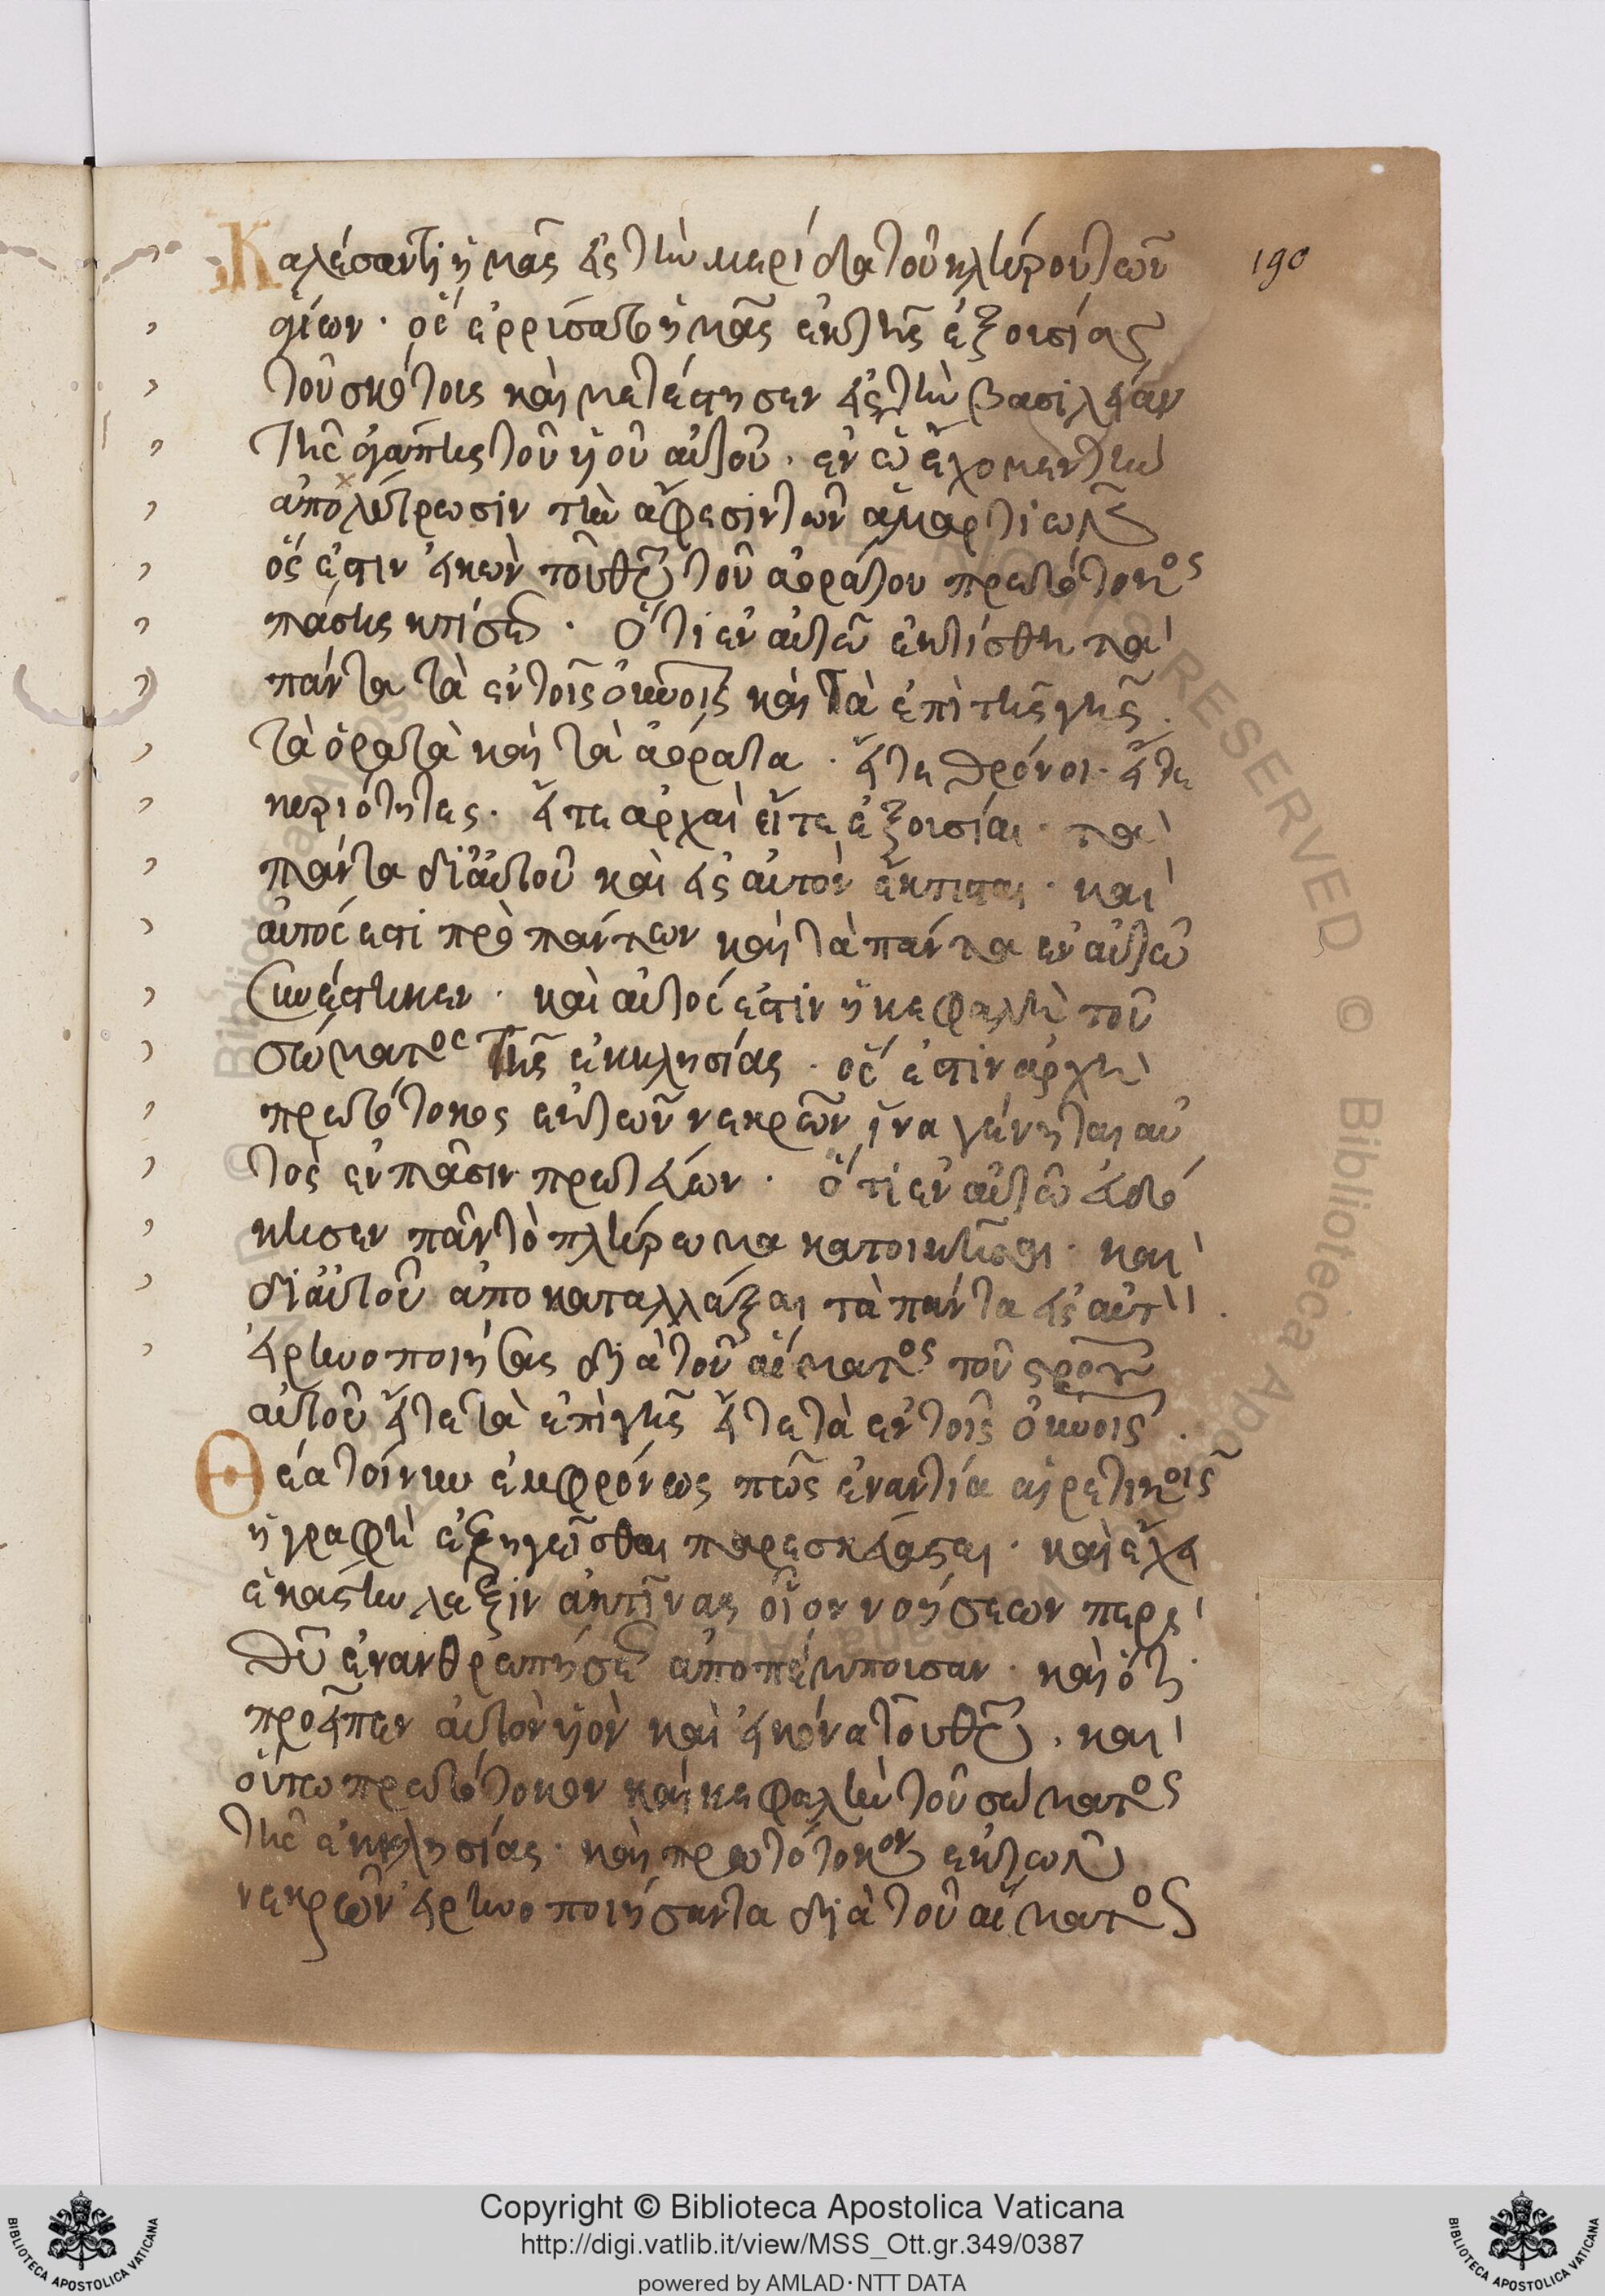 Καλέσαντι ἡμᾶς εἰς τὴν μερίδα τοῦ κλήρου τῶν
190
ἁγίων · ὃς ἐρρύσατο ἡμᾶς ἐκ τῆς ἐξουσίας
τοῦ σκότους καὶ μετέστησεν εἰς τὴν βασιλείαν
τῆς ἀγάπης τοῦ υἱοῦ αὐτοῦ · ἐν ᾧ ἔχομεν τὴν
ἀπολύτρωσιν τὴν ἄφεσιν τῶν ἁμαρτιῶν
ὅς ἐστιν εἰκὼν τοῦ θυ τοῦ ἀοράτου πρωτότοκος
πάσης κτίσεως · Ὅτι ἐν αὐτῷ ἐκτίσθη τὰ
πάντα τὰ ἐν τοῖς οὐνοῖς καὶ τὰ ἐπὶ τῆς γῆς ·
τὰ ὁρατὰ καὶ τὰ ἀόρατα · εἴτε θρόνοι · εἴτε
κυριότητες · εἴτε ἀρχαὶ εἴτε ἐξουσίαι · τὰ
πάντα δι' αὐτοῦ καὶ εἰς αὐτὸν ἔκτισται · καὶ
αὐτός ἐστι πρὸ πάντων καὶ τὰ πάντα ἐν αὐτῷ
συνέστηκεν · καὶ αὐτός ἐστιν ἡ κεφαλὴ τοῦ
σώματος τῆς ἐκκλησίας · ὅς ἐστιν ἀρχὴ
πρωτότοκος ἐκ τῶν νεκρῶν ἵνα γένηται αὐ
τὸς ἐν πᾶσιν πρωτεύων · ὅτι ἐν αὐτῷ εὐδό
κησεν πᾶν τὸ πλήρωμα κατοικῆσαι · καὶ
δι' αὐτοῦ ἀποκαταλλάξαι τὰ πάντα εἰς αὐτὸν ·
εἰρηνοποιήσας διὰ τοῦ αἵματος τοῦ σροῦ
αὐτοῦ εἴτε τὰ ἐπὶ γῆς εἴτε τὰ ἐν τοῖς οὐνοῖς ·
Θέα τοίνυν ἐμφρόνως πῶς ἐναντία αἱρετικοῖς
ἡ γραφὴ ἐξηγεῖσθαι παρεσκεύασται · καὶ
ἑκάστην λέξιν ἀκτῖνας οἷον νοήσεων περὶ
θυ ἐνανθρωπήσεως ἀποπέμπουσαν · καὶ ὅτι
προεῖπεν αὐτὸν υἱὸν καὶ εἰκόνα τοῦ θυ · καὶ
οὕτω πρωτότοκον καὶ κεφαλὴν τοῦ σώματος
τῆς ἐκκλησίας · καὶ πρωτότοκον ἐκ τῶν
νεκρῶν εἰρηνοποιήσαντα διὰ τοῦ αἵματος
Copyright © Biblioteca Apostolica Vaticana
http://digi.vatlib.it/view/MSS_Ott.gr.349/0387
powered by AMLAD·NTT DATA
BIBLIOTECA APOSTOLICA VATICANA
BIBLIOTECA APOSTOLICA VATICANA